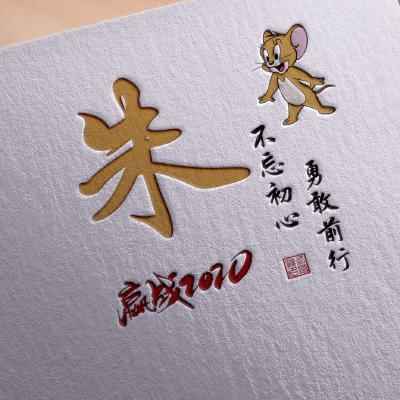 朱
不忘初心
勇敢前行
赢战2020